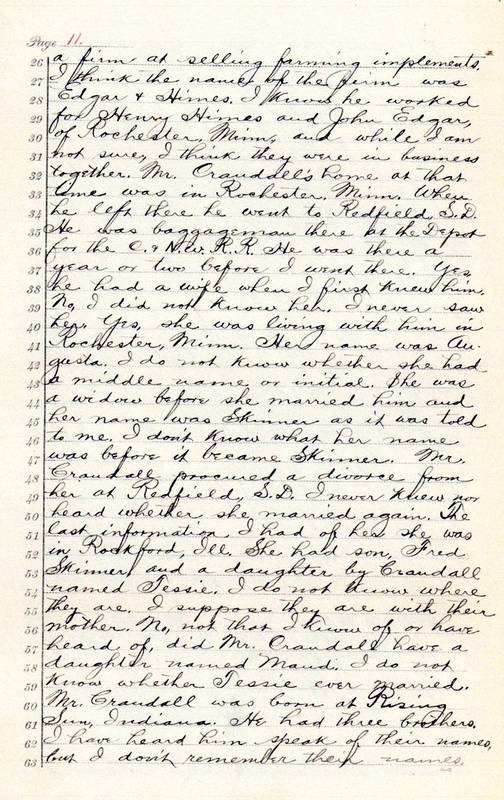 Page 11.
26 a firm at selling farming implements.
27 I think the name of the firm was
28 Edgar & Himes. I know he worked
29 for Henry Himes and John Edgar,
30 of Rochester, Minn, and while I am
31 not sure, I think they were in business
32 together. Mr. Crandall's home at that
33 time was in Rochester, Minn. When
34 he left there he went to Redfield, S.D.
35 He was baggageman there at the Depot
36 for the C. & N.W. R.R. He was there a
37 year or two before I went there. Yes,
38 he had a wife when I first knew him.
39 No, I did not know her. I never saw
40 her. Yes, she was living with him in
41 Rochester, Minn. Her name was Au-
42 gusta. I do not know whether she had
43 a middle name or initial. She was
44 a widow before she married him and
45 her name was Skinner as it was told
46 to me. I don't know what her name
47 was before it became Skinner. Mr.
48 Crandall procured a divorce from
49 her at Redfield, S.D. I never knew nor
50 heard whether she married again. The
51 last information I had of her she was
52 in Rockford, Ill. She had son, Fred
53 Skinner, and a daughter by Crandall
54 named Tessie. I do not know where
55 they are. I suppose they are with their
56 mother. No, not that I know of or have
57 heard of, did Mr. Crandall have a
58 daughter named Maud. I do not
59 know whether Tessie ever married.
60 Mr. Crandall was born at Rising
61 Sun, Indiana. He had three brothers.
62 I have heard him speak of their names,
63 but I don't remember their names.